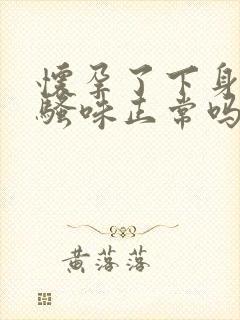 怀孕了下身
骚味正常吗
黄落落